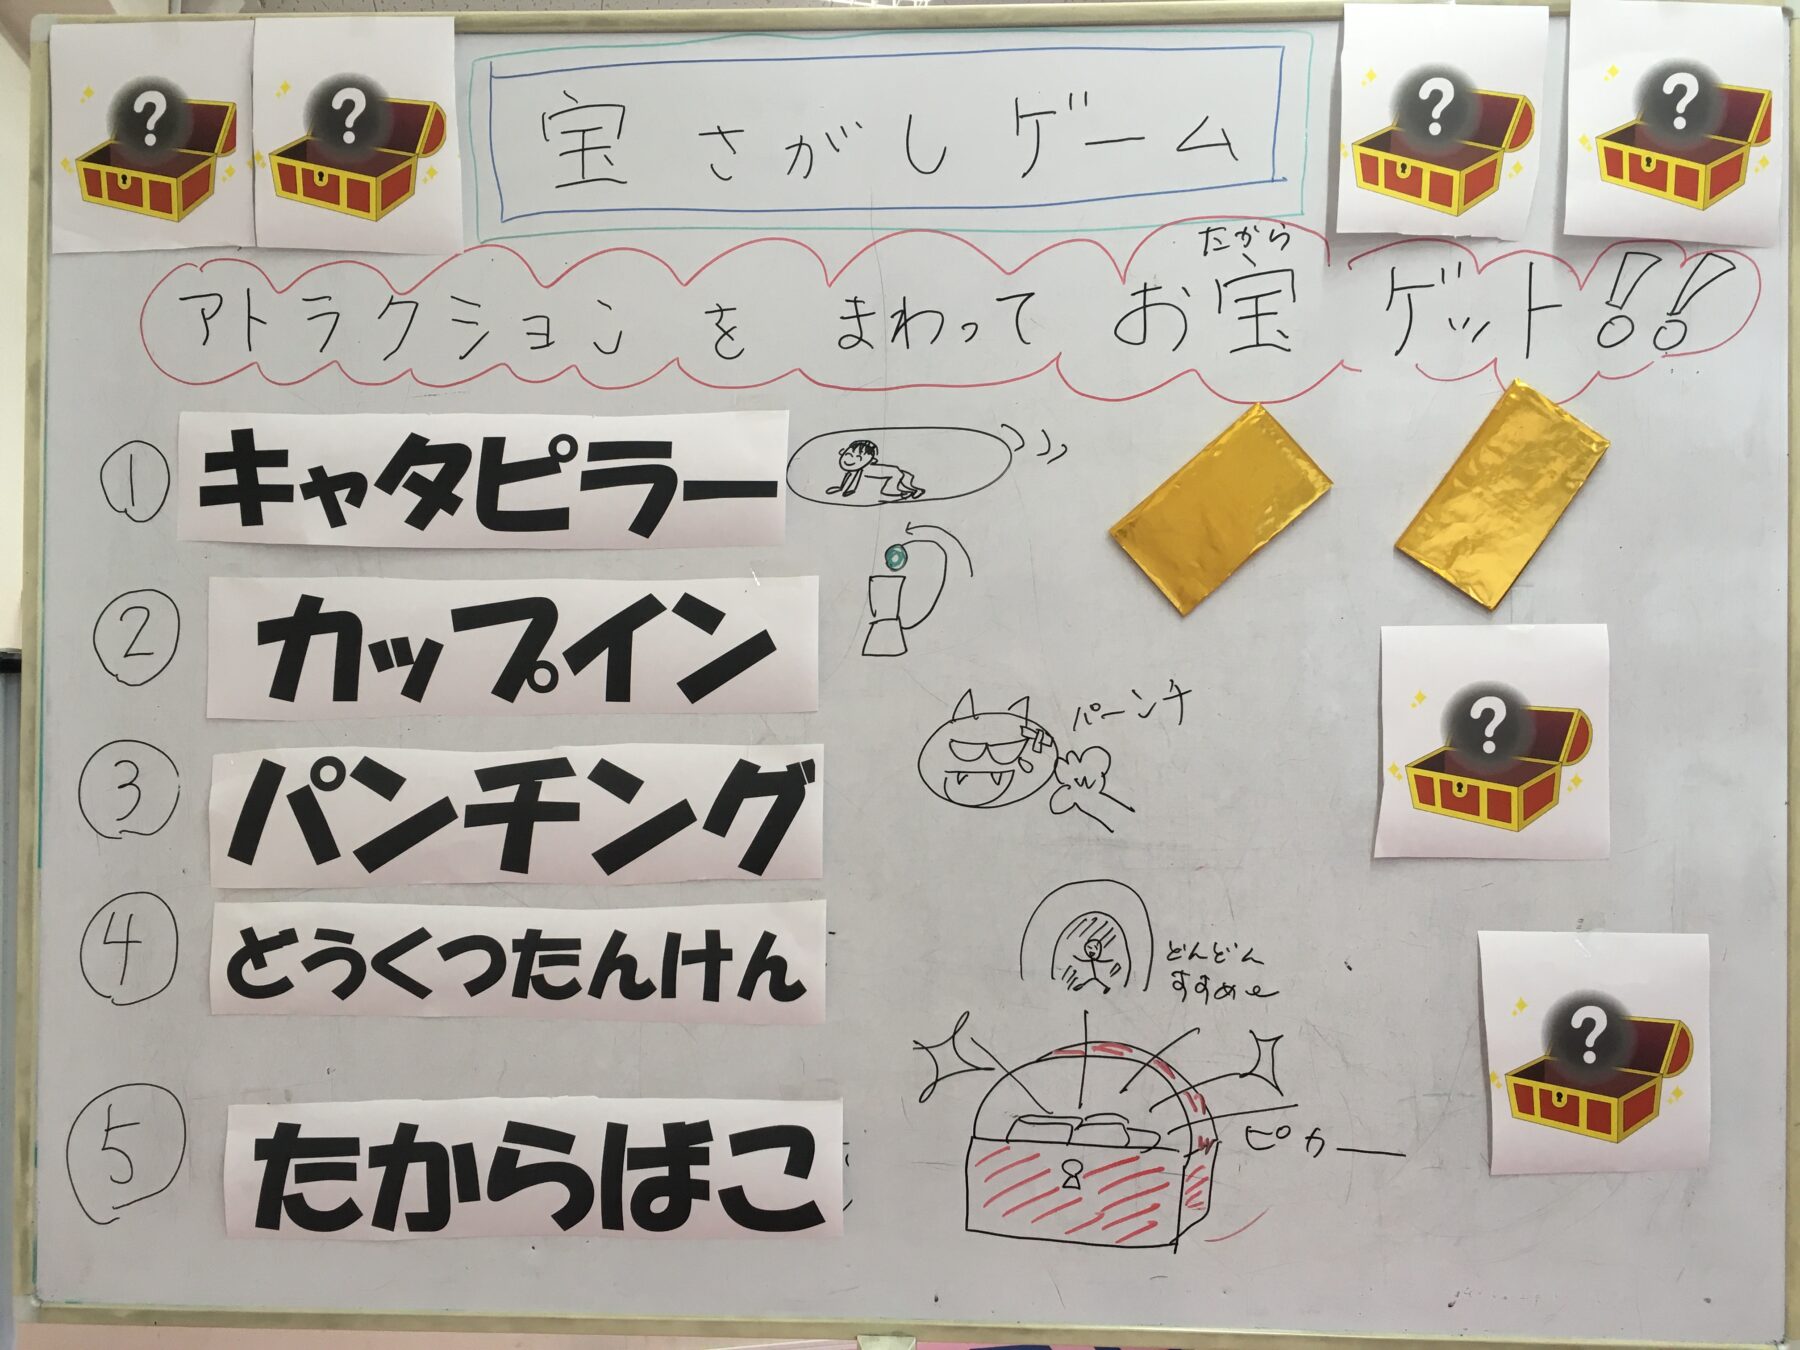 宝さがしゲーム
たから
アトラクションをまわってお宝ゲット!!
① キャタピラー
② カップイン
③ パンチング
パーンチ
④ どうくつたんけん
どんどん
すすめ〜
⑤ たからばこ
ピカー
? ? ? ? ? ?